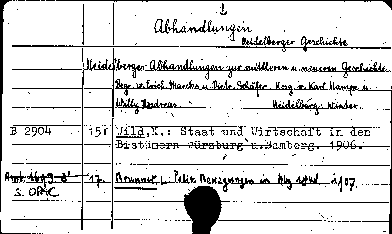 Abhandlungen
Heidelberger Geschichte
Heidelberger Abhandlungen zur mittleren u. neueren Geschichte.
Beg. v. Erich Marcks u. Dietr. Schäfer. Hrsg. v. Karl Hampe u.
Willy Andreas. Heidelberg: Winter.
B 2904 15. Wild, K.: Staat und Wirtschaft in den
Bistümern Würzburg u. Bamberg. 1906.
17. Brunner, L.: Polit. Bewegungen in 1907.